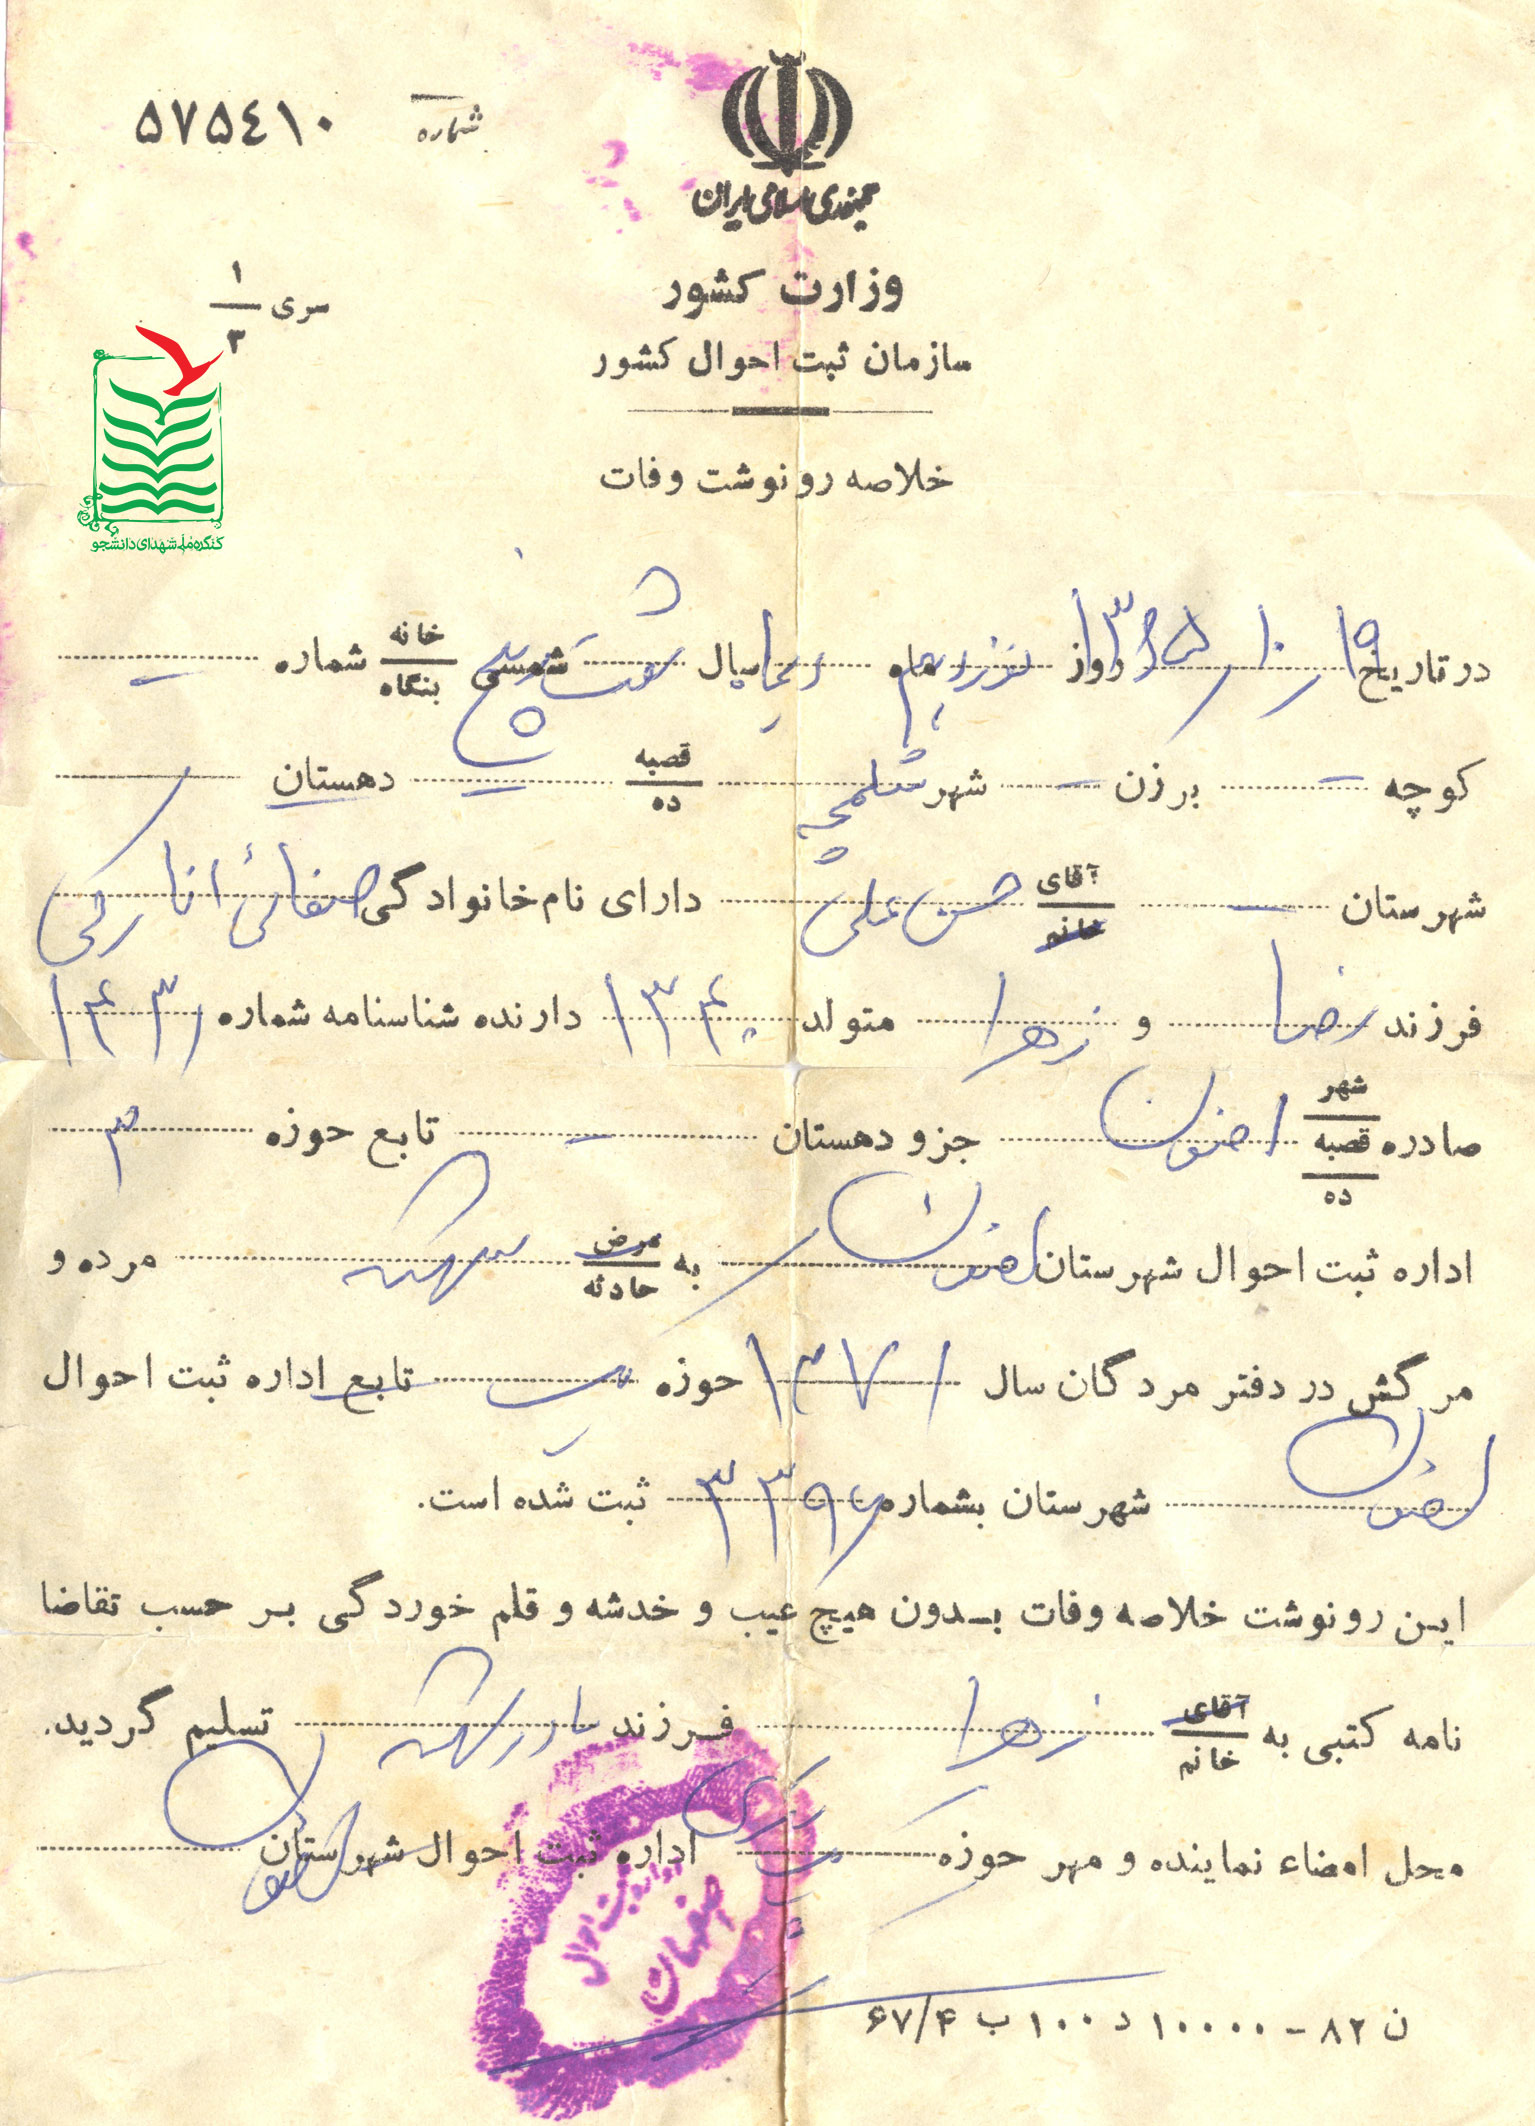 شماره ۵۷۵۴۱۰
جمهوری اسلامی ایران
سری ۱/۳
وزارت کشور
سازمان ثبت احوال کشور
خلاصه رونوشت وفات
کنگره ملی شهدای دانشجو
در تاریخ ۱۹ / ۱۰ / ۱۳۶۵ روز نوزدهم ماه دیماه سال شصت و پنج شمسی خانه بنگاه شماره —
کوچه — برزن — شهر شلمچه قصبه ده — دهستان
شهرستان — آقای خانم حسن علی دارای نام خانوادگی صفائی انارکی
فرزند رضا و زهرا متولد ۱۳۴۰ دارنده شناسنامه شماره ۱۴۳۱
صادره شهر قصبه ده اصفهان جزو دهستان — تابع حوزه ۳
اداره ثبت احوال شهرستان اصفهان به مرض حادثه مرده و
مرگش در دفتر مردگان سال ۱۳۷۱ حوزه یک تابع اداره ثبت احوال
اصفهان شهرستان بشماره ۳۳۹۶ ثبت شده است.
این رونوشت خلاصه وفات بدون هیچ عیب و خدشه و قلم خوردگی بر حسب تقاضا
نامه کتبی به آقای خانم زهرا فرزند تسلیم گردید.
محل امضاء نماینده و مهر حوزه یک اداره ثبت احوال شهرستان اصفهان
ثبت احوال
اصفهان
ن ۸۲ – ۱۰۰۰۰ د ۱۰۰ ب ۶۷/۴